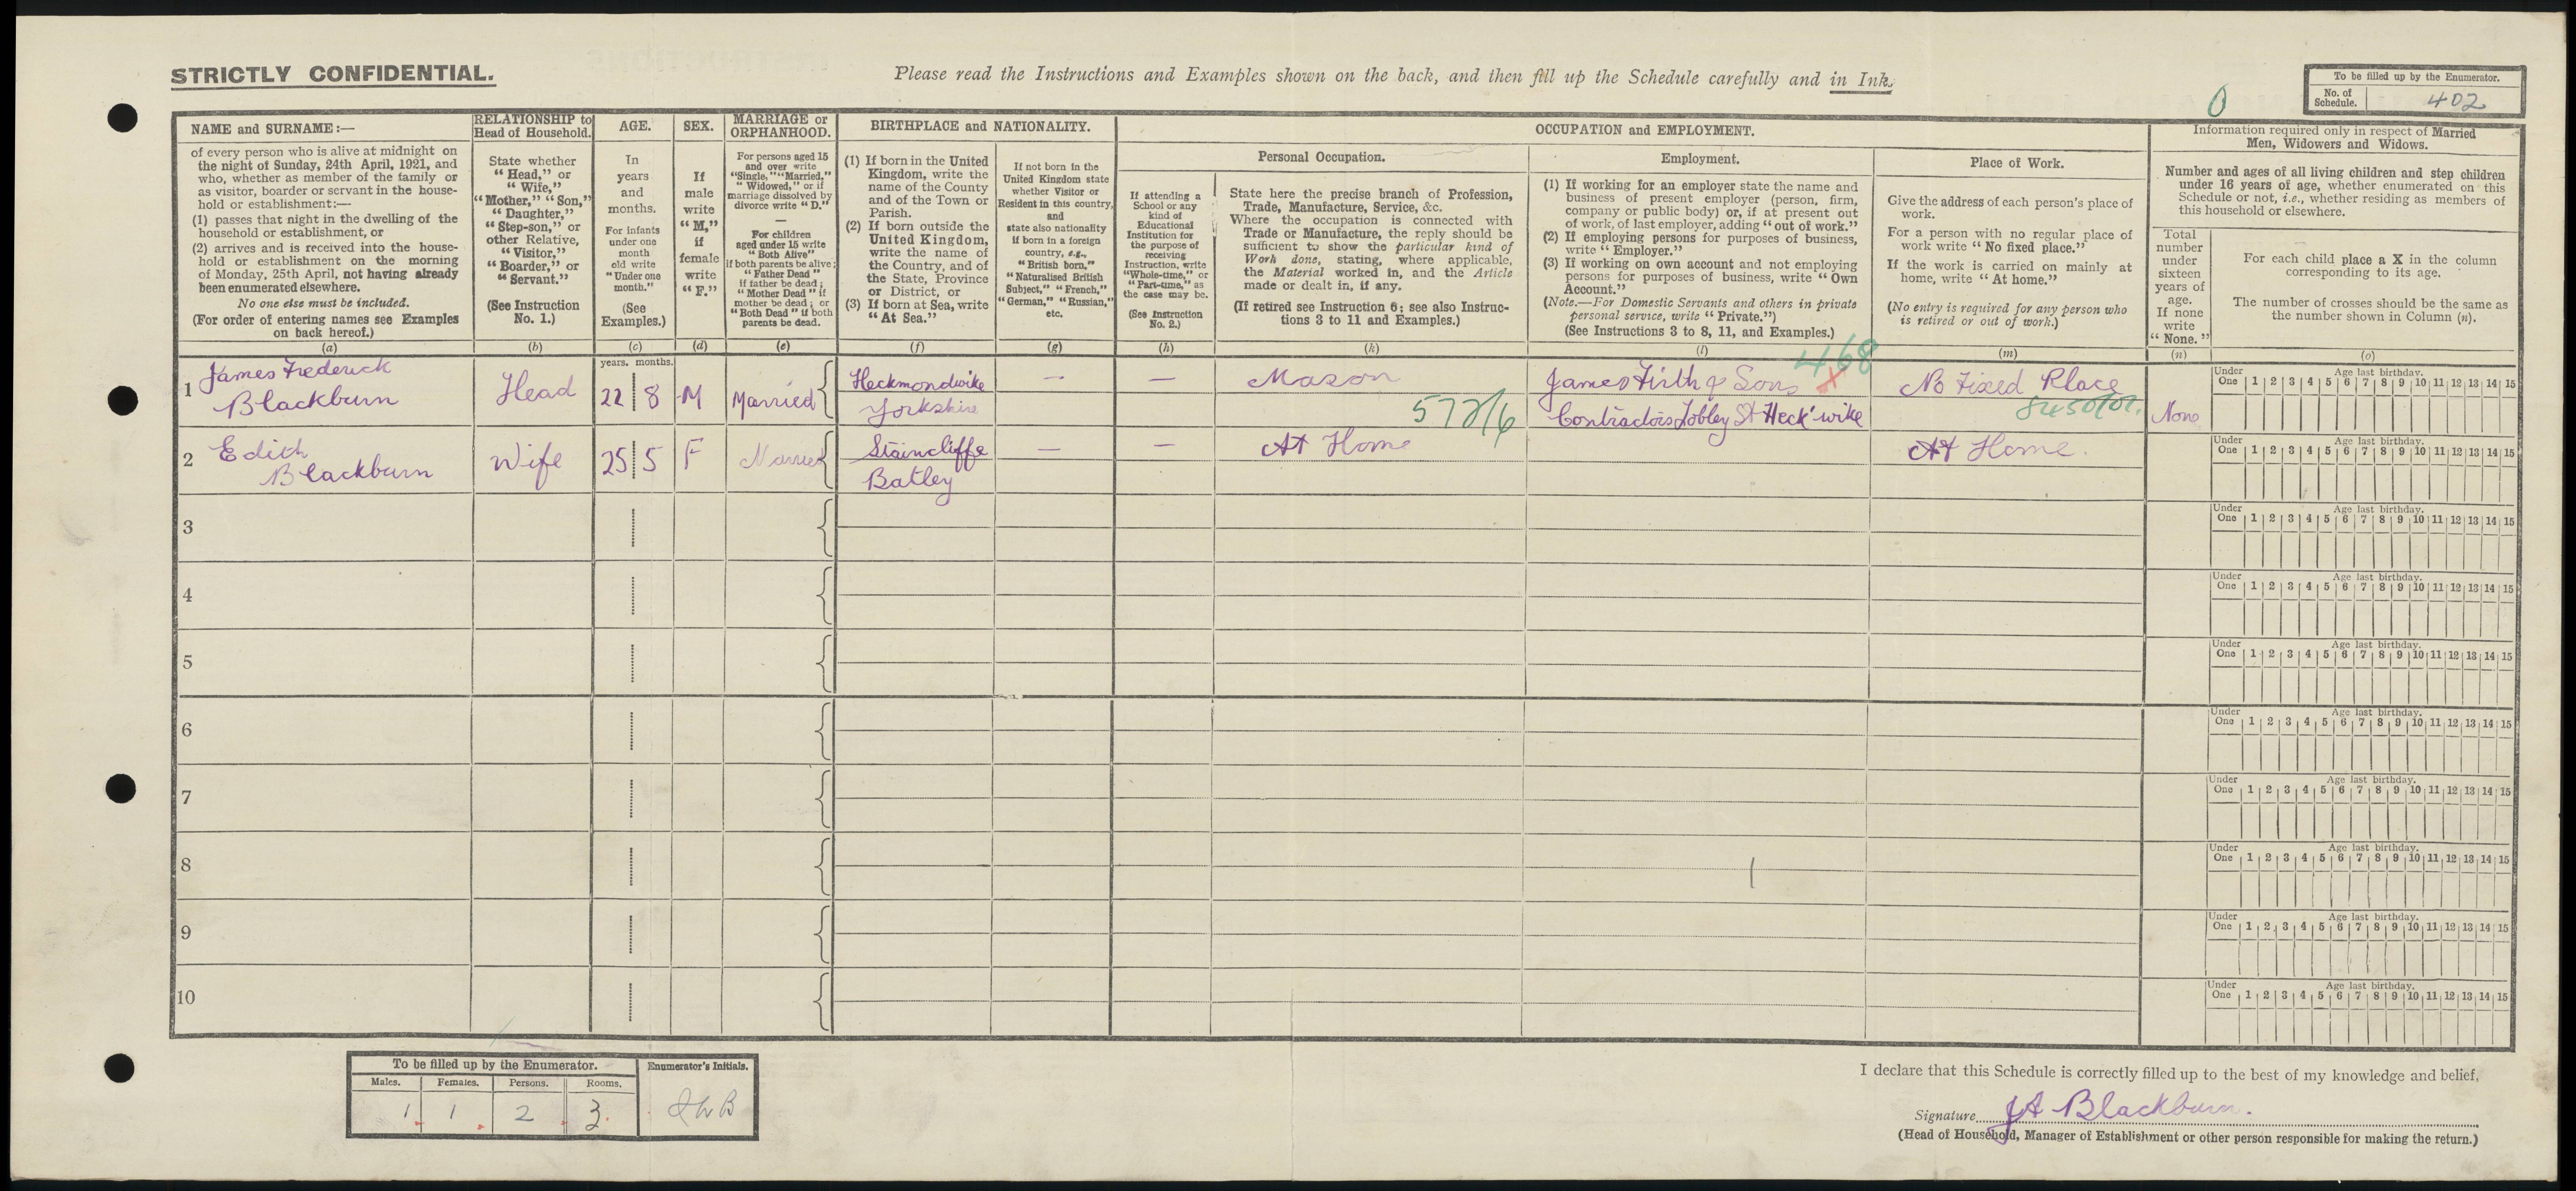 STRICTLY CONFIDENTIAL.
Please read the Instructions and Examples shown on the back, and then fill up the Schedule carefully and in Ink.
To be filled up by the Enumerator.
No. of Schedule. 402
NAME and SURNAME:—
of every person who is alive at midnight on
the night of Sunday, 24th April, 1921, and
who, whether as member of the family or
as visitor, boarder or servant in the house-
hold or establishment:—
(1) passes that night in the dwelling of the
household or establishment, or
(2) arrives and is received into the house-
hold or establishment on the morning
of Monday, 25th April, not having already
been enumerated elsewhere.
No one else must be included.
(For order of entering names see Examples
on back hereof.)
(a)
RELATIONSHIP to
Head of Household.
State whether
"Head," or
"Wife,"
"Mother," "Son,"
"Daughter,"
"Step-son," or
other Relative,
"Visitor,"
"Boarder," or
"Servant."
(See Instruction
No. 1.)
(b)
AGE.
In
years
and
months.
For infants
under one
month
old write
"Under one
month."
(See
Examples.)
(c)
SEX.
If
male
write
"M,"
if
female
write
"F."
(d)
MARRIAGE or
ORPHANHOOD.
For persons aged 15
and over write
"Single," "Married,"
"Widowed," or if
marriage dissolved by
divorce write "D."
—
For children
aged under 15 write
"Both Alive"
if both parents be alive;
"Father Dead"
if father be dead;
"Mother Dead" if
mother be dead; or
"Both Dead" if both
parents be dead.
(e)
BIRTHPLACE and NATIONALITY.
(1) If born in the United
Kingdom, write the
name of the County
and of the Town or
Parish.
(2) If born outside the
United Kingdom,
write the name of
the Country, and of
the State, Province
or District, or
(3) If born at Sea, write
"At Sea."
(f)
If not born in the
United Kingdom state
whether Visitor or
Resident in this country,
and
state also nationality
if born in a foreign
country, e.g.,
"British born,"
"Naturalised British
Subject," "French,"
"German," "Russian,"
etc.
(g)
OCCUPATION and EMPLOYMENT.
Personal Occupation.
If attending a
School or any
kind of
Educational
Institution for
the purpose of
receiving
Instruction, write
"Whole-time," or
"Part-time," as
the case may be.
(See Instruction
No. 2.)
(h)
State here the precise branch of Profession,
Trade, Manufacture, Service, &c.
Where the occupation is connected with
Trade or Manufacture, the reply should be
sufficient to show the particular kind of
Work done, stating, where applicable,
the Material worked in, and the Article
made or dealt in, if any.
(If retired see Instruction 6; see also Instruc-
tions 3 to 11 and Examples.)
(k)
Employment.
(1) If working for an employer state the name and
business of present employer (person, firm,
company or public body) or, if at present out
of work, of last employer, adding "out of work."
(2) If employing persons for purposes of business,
write "Employer."
(3) If working on own account and not employing
persons for purposes of business, write "Own
Account."
(Note.—For Domestic Servants and others in private
personal service, write "Private.")
(See Instructions 3 to 8, 11, and Examples.)
(l)
Place of Work.
Give the address of each person's place of
work.
For a person with no regular place of
work write "No fixed place."
If the work is carried on mainly at
home, write "At home."
(No entry is required for any person who
is retired or out of work.)
(m)
Information required only in respect of Married
Men, Widowers and Widows.
Number and ages of all living children and step children
under 16 years of age, whether enumerated on this
Schedule or not, i.e., whether residing as members of
this household or elsewhere.
Total
number
under
sixteen
years of
age.
If none
write
"None."
(n)
For each child place a X in the column
corresponding to its age.
The number of crosses should be the same as
the number shown in Column (n).
(o)
years. months.
468
1 James Frederick Head 22 8 M Married Heckmondwike — — Mason James Firth & Sons X No Fixed Place
Blackburn Yorkshire 572/6 Contractors Lobley St Heck'wike 8450/01. None
Under One 1 2 3 4 5 6 7 8 9 10 11 12 13 14 15
Age last birthday.
2 Edith Wife 25 5 F Married Staincliffe — — At Home At Home.
Blackburn Batley
Under One 1 2 3 4 5 6 7 8 9 10 11 12 13 14 15
Age last birthday.
3
Under One 1 2 3 4 5 6 7 8 9 10 11 12 13 14 15
Age last birthday.
4
Under One 1 2 3 4 5 6 7 8 9 10 11 12 13 14 15
Age last birthday.
5
Under One 1 2 3 4 5 6 7 8 9 10 11 12 13 14 15
Age last birthday.
6
Under One 1 2 3 4 5 6 7 8 9 10 11 12 13 14 15
Age last birthday.
7
Under One 1 2 3 4 5 6 7 8 9 10 11 12 13 14 15
Age last birthday.
8
Under One 1 2 3 4 5 6 7 8 9 10 11 12 13 14 15
Age last birthday.
9
Under One 1 2 3 4 5 6 7 8 9 10 11 12 13 14 15
Age last birthday.
10
Under One 1 2 3 4 5 6 7 8 9 10 11 12 13 14 15
Age last birthday.
To be filled up by the Enumerator.
Males. Females. Persons. Rooms.
1 1 2 3
Enumerator's Initials.
I declare that this Schedule is correctly filled up to the best of my knowledge and belief.
Signature Blackburn.
(Head of Household, Manager of Establishment or other person responsible for making the return.)